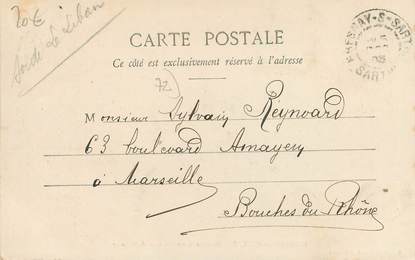 20€
CARTE POSTALE
Ce côté est exclusivement réservé à l'adresse
FRESNAY-S-SARTHE
72
Monsieur Sylvain Reynoard
63 boulevard
à Marseille
Bouches du Rhône